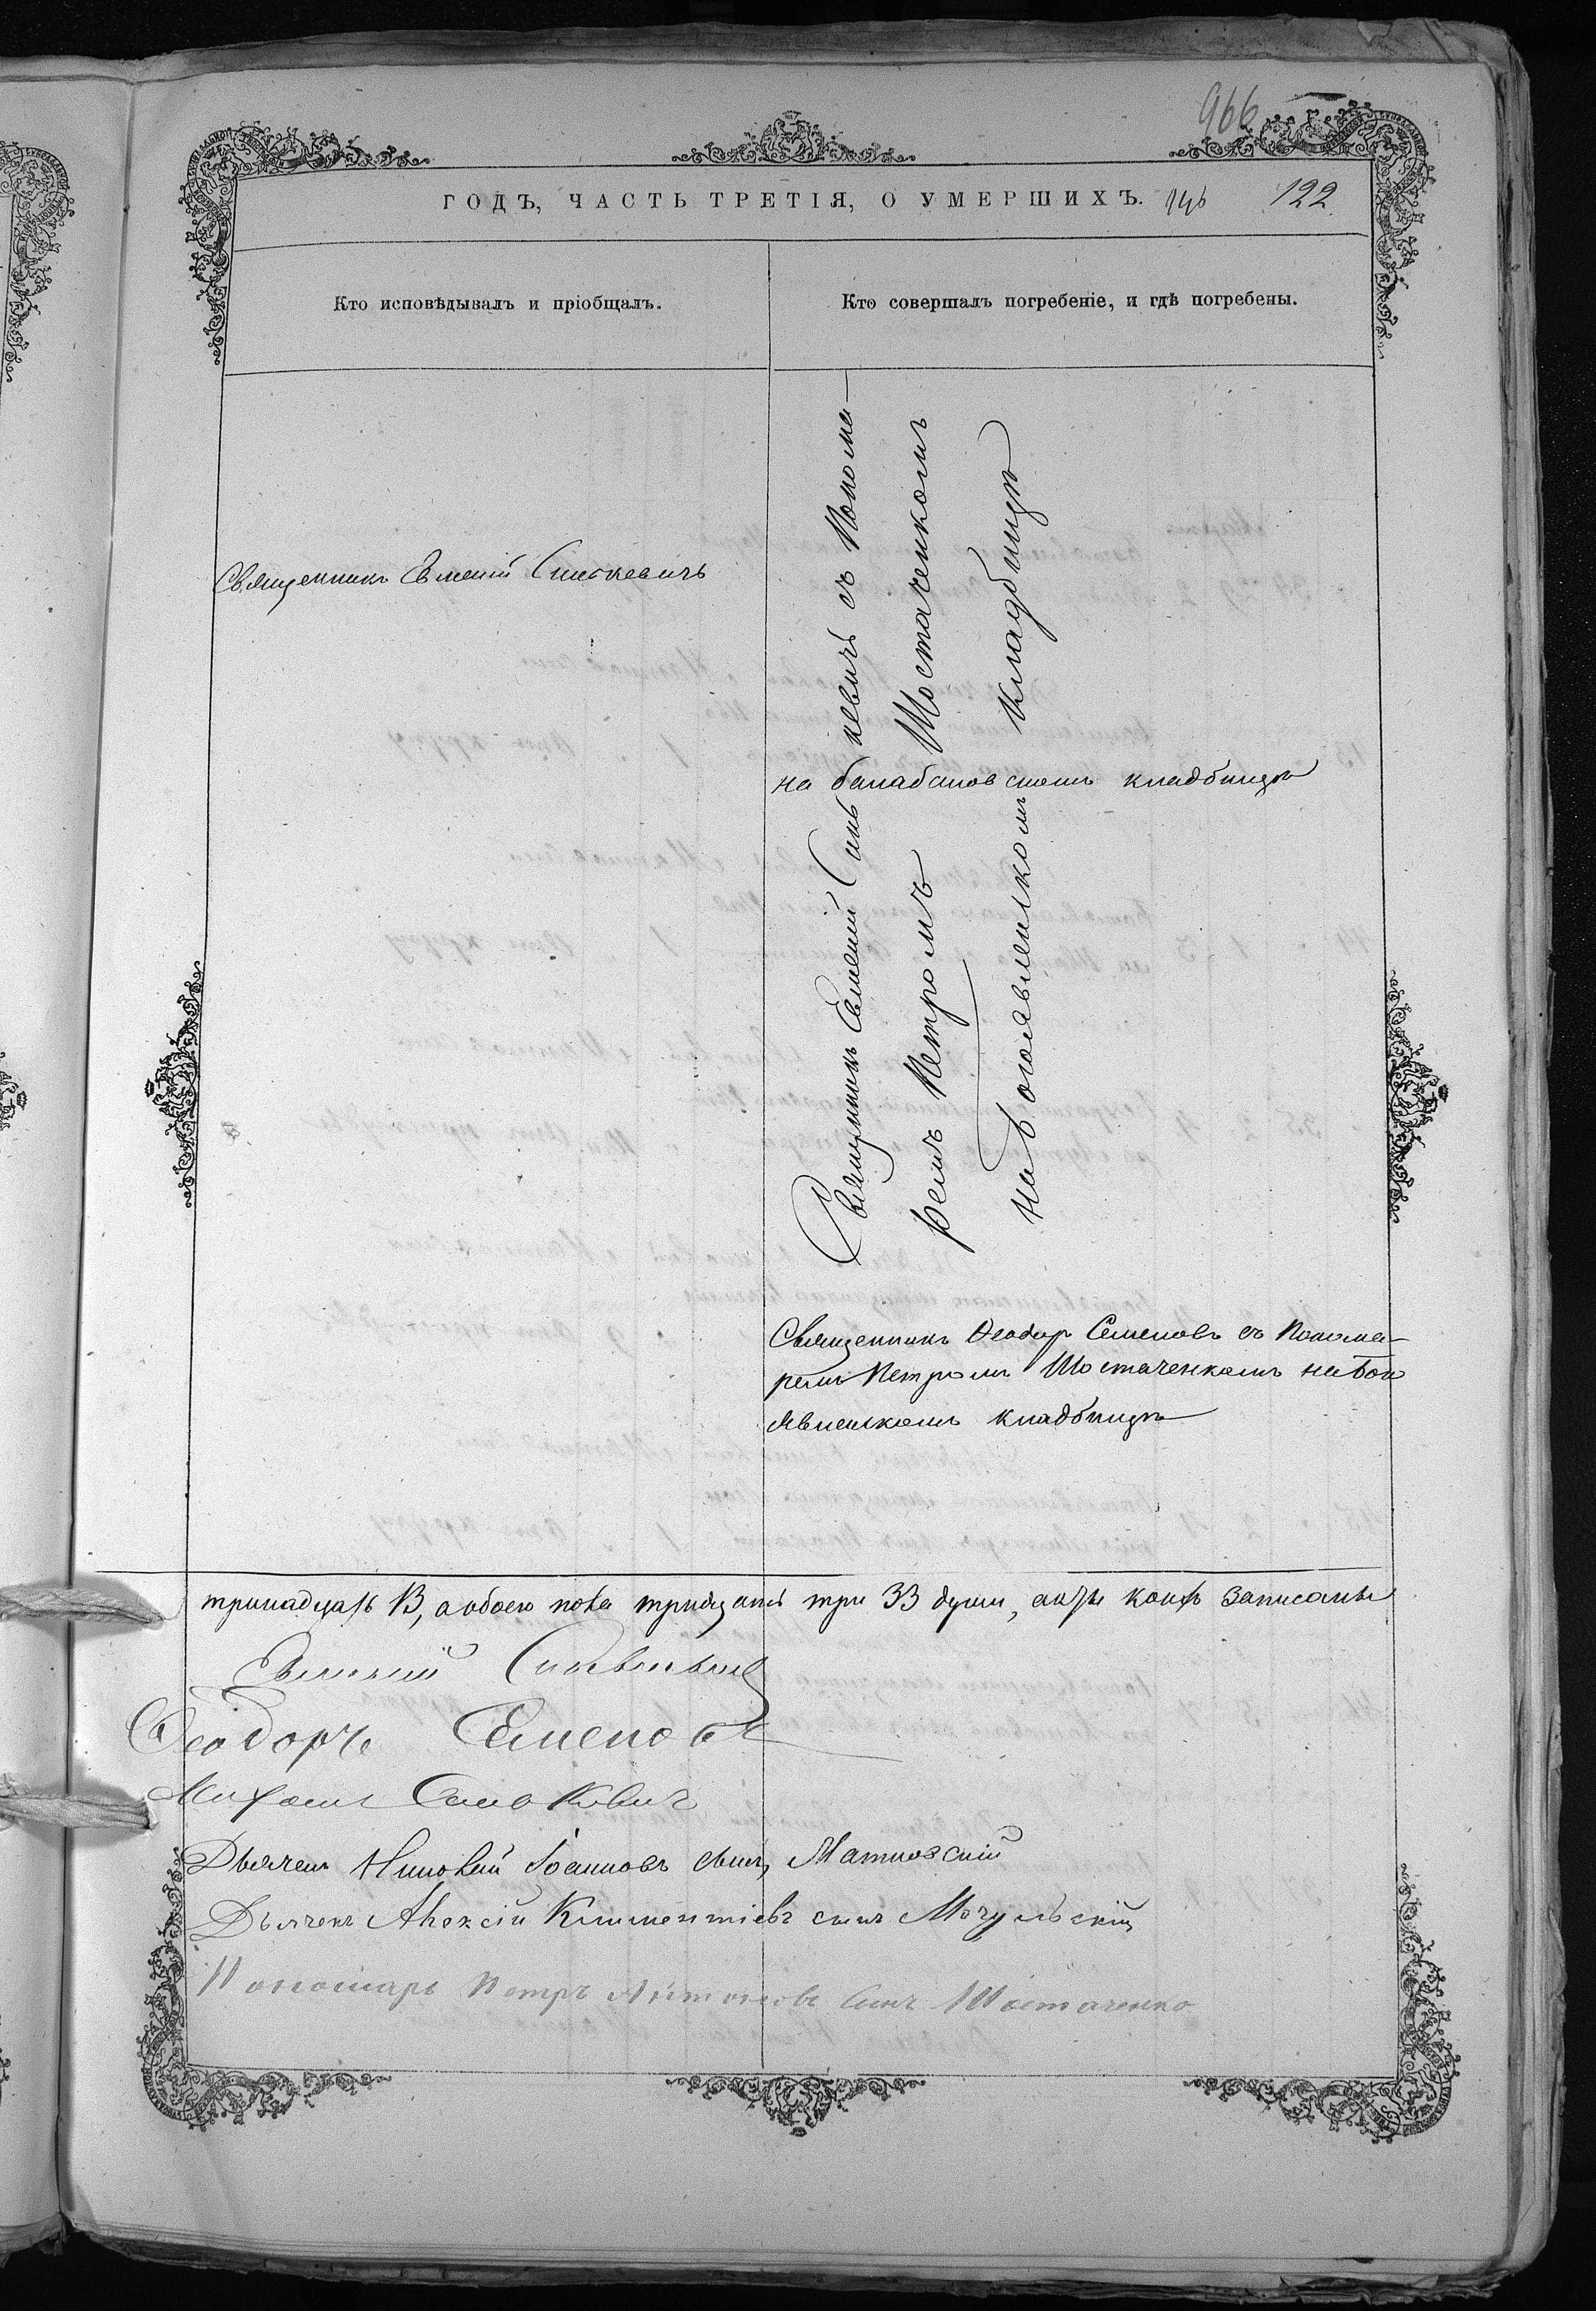 966
ГОДЪ, ЧАСТЬ ТРЕТІЯ, О УМЕРШИХЪ. 122
Кто исповѣдывалъ и пріобщалъ.
Кто совершалъ погребеніе, и гдѣ погребены.
Священникъ Евменій
Священникъ Евменій съ Понома-
ремъ Петромъ Шостаченкомъ
на Богоявленскомъ Кладбищѣ
на балабановскомъ кладбищѣ
Священникъ Ѳеодоръ Семеновъ съ Понома-
ремъ Петромъ Шостаченкомъ на Бого
явленскомъ кладбищѣ
тринадцать 13, а обоего пола тридцать три 33 души, акты коихъ записаны
Евменій
Ѳеодоръ Семеновъ
Михаилъ
Дьячекъ Іоанновъ сынъ
Дьячекъ Алексій Климентіевъ сынъ Мочульскій
Пономарь Петръ Антоновъ сынъ Шостаченко